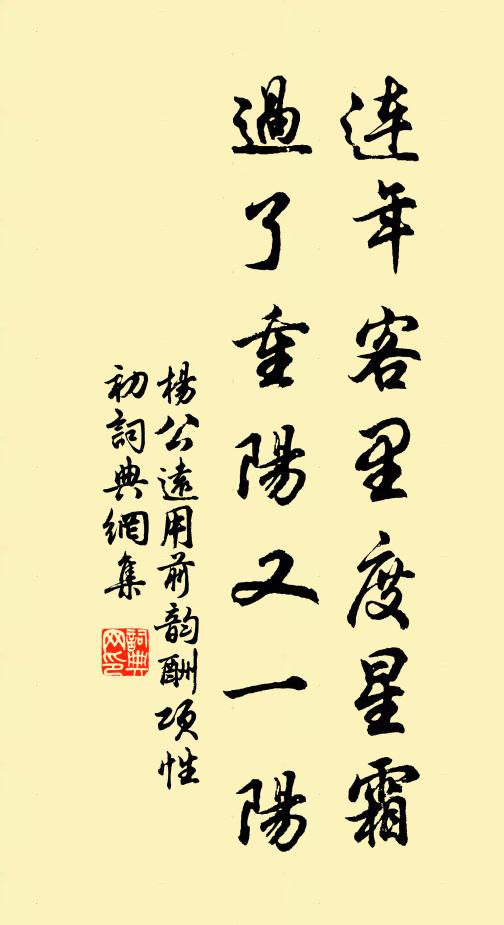 連年客里度星霜
過了重陽又一陽
楊公遠用前韵酬項性
初詞典網集
詞典网印